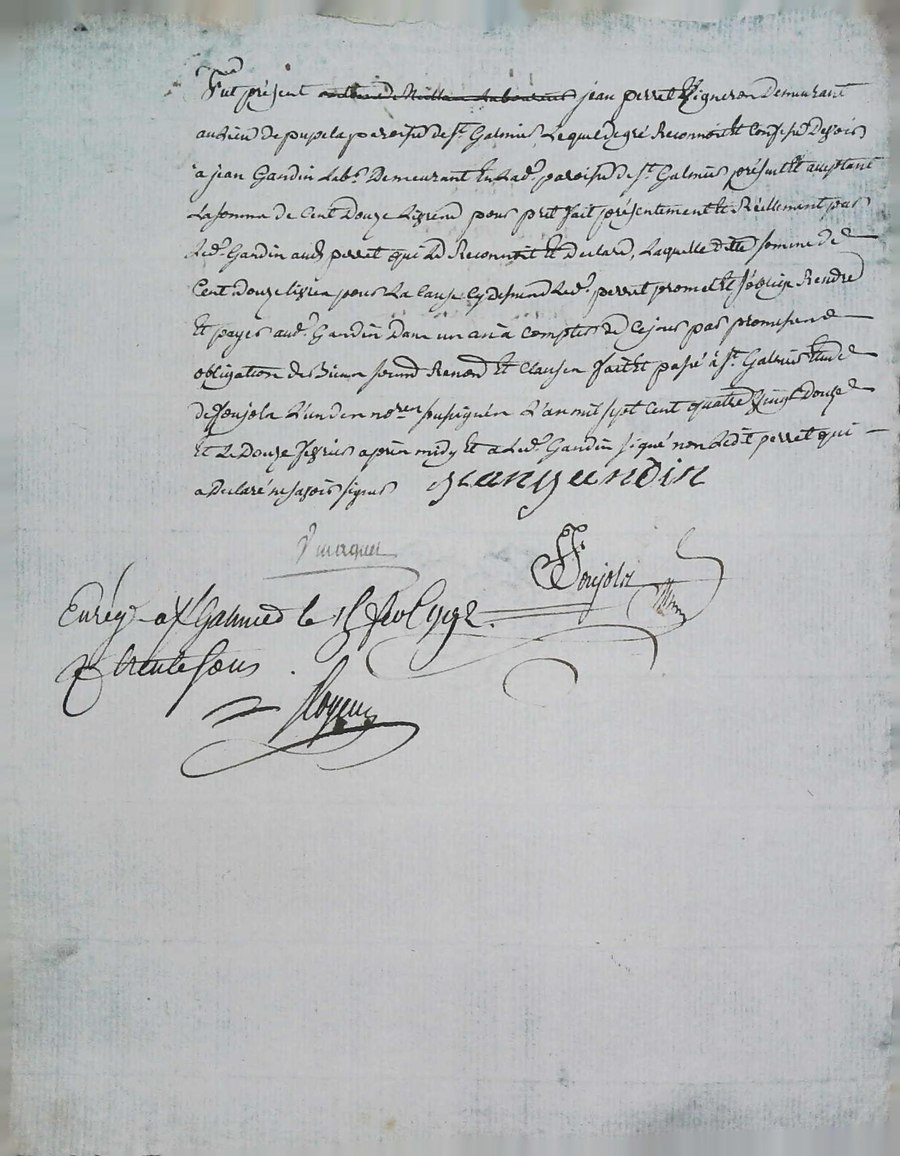 Fut présent jean perret Vigneron Demeurant
au lieu de pupela paroisse de St. Galmier Lequel de gré Reconnoit Et Confesse Devoir
a jean Gandin Lab.r Demeurant En Lad.e paroisse de St. Galmier présent Et acceptant
La somme de Cent Douze Livres pour pret fait présentement Et Réellement par
Led.t Gandin aud.t perret qui Le Reconnoit Et Declare, Laquelle dite somme de
Cent douze livres pour La Cause Cy dessus Led.t perret promet Et s'oblige Rendre
Et payer aud.t Gandin Dans un an a compter de Ce jour par promesses
obligation de Biens soumis Renon.d Et Clauses fait Et passé à St. Galmier Etude
de foujols L'un des no.res soussignés L'an mil sept cent quatre Vingt Douze
Et Le Douze fevrier aprés midy Et a Led.t Gandin signé non Ledit perret qui
a Declaré ne savoir signer jean gandin
foujols
Enrég. a St Galmier le 15 fev 1792.
R trente sous.